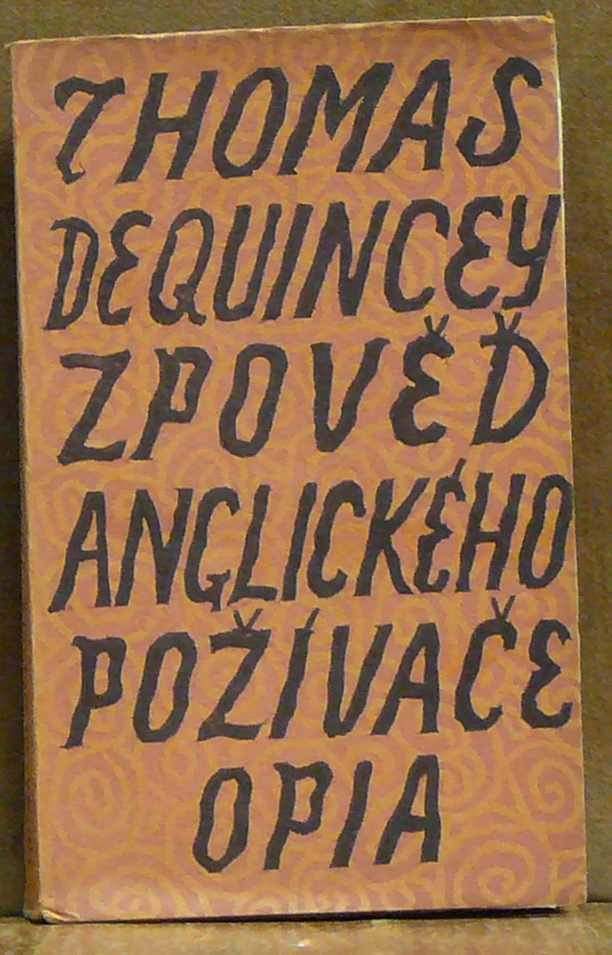 THOMAS
DEQUINCEY
ZPOVĚĎ
ANGLICKÉHO
POŽÍVAČE
OPIA